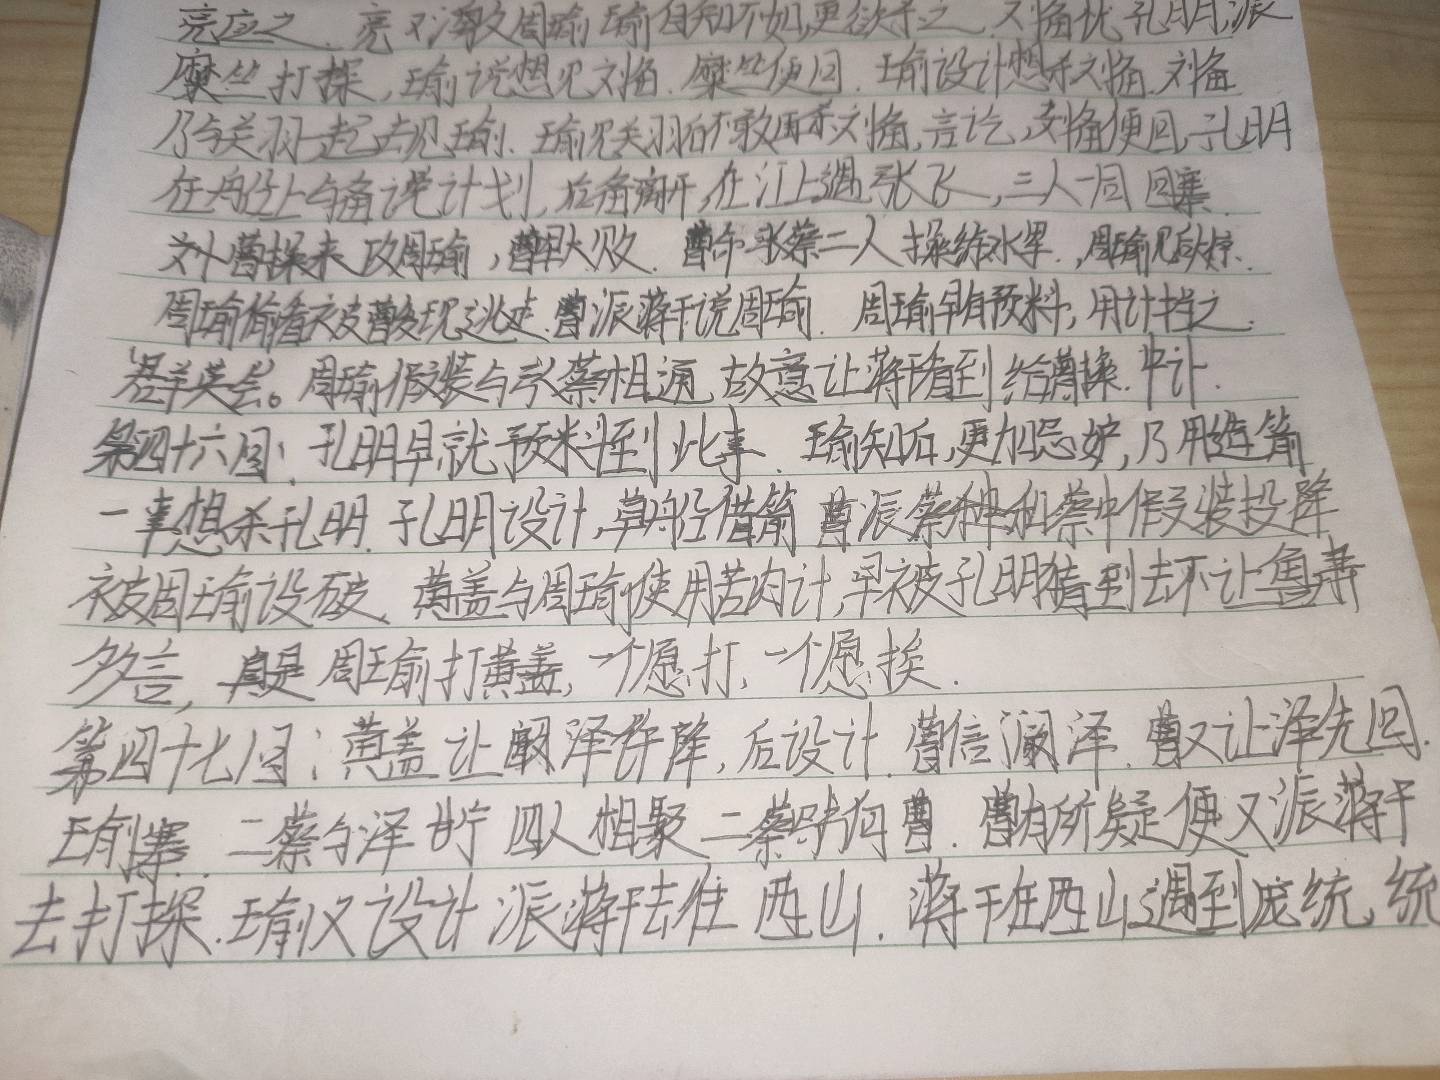 亮应之.亮又激周瑜瑜自知不如,更欲杀之.刘备忧孔明,派
糜竺打探,瑜说想见刘备.糜竺便回.瑜设计想杀刘备.刘备
乃与关羽一起去见瑜.瑜见关羽后不敢再杀刘备,言讫,刘备便回,孔明
在舟上与备说计划,后备离开,在江上遇张飞,三人一同回寨.
曹操来攻周瑜,曹军大败.曹命张蔡二人操练水军.,周瑜见后大惊.
周瑜偷看被曹发现逃走.曹派蒋干说周瑜.周瑜早有预料,用计挡之.
群英会。周瑜假装与张蔡相通,故意让蒋干看到给曹操.中计.
第四十六回:孔明早就预料到此事.瑜知后,更加忌妒,乃用造箭
一事想杀孔明.孔明设计,草船借箭曹派蔡和蔡中假装投降
被周瑜设破.黄盖与周瑜使用苦肉计,早被孔明猜到去不让鲁肃
多言,真是周瑜打黄盖,一个愿打,一个愿挨.
第四十七回:黄盖让阚泽诈降,后设计.曹信阚泽.曹又让泽先回.
瑜寨.二蔡与泽甘宁四人相聚二蔡呼何曹.曹有所疑便又派蒋干
去打探.瑜又设计派蒋干去住西山.蒋干在西山遇到庞统,统